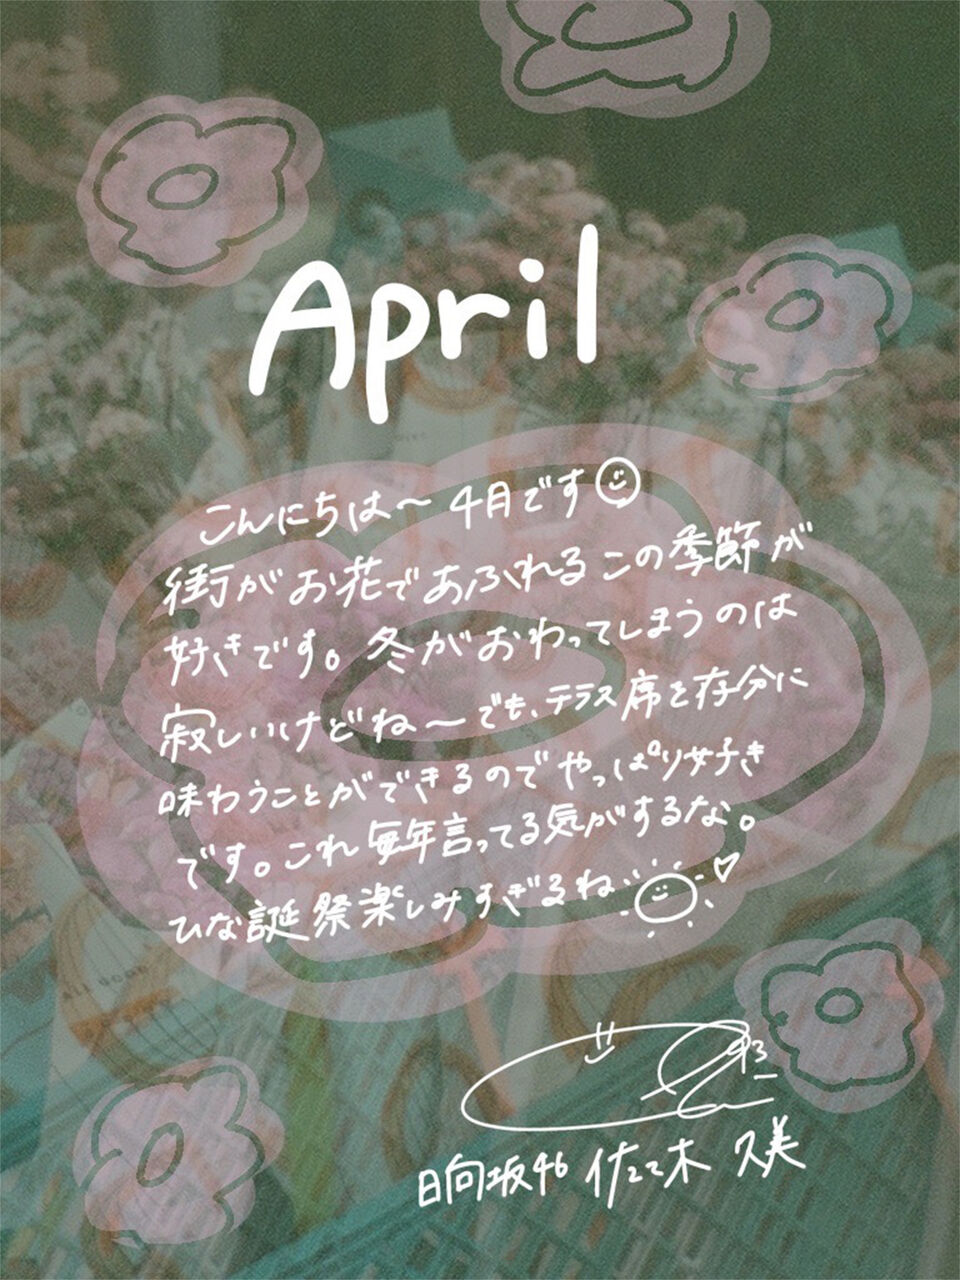 April
こんにちは〜 4月です
街がお花であふれるこの季節が
好きです。冬がおわってしまうのは
寂しいけどね〜でも、テラス席を存分に
味わうことができるのでやっぱり好き
です。これ毎年言ってる気がするな。
ひな誕祭楽しみすぎるね
日向坂46 佐々木 久美